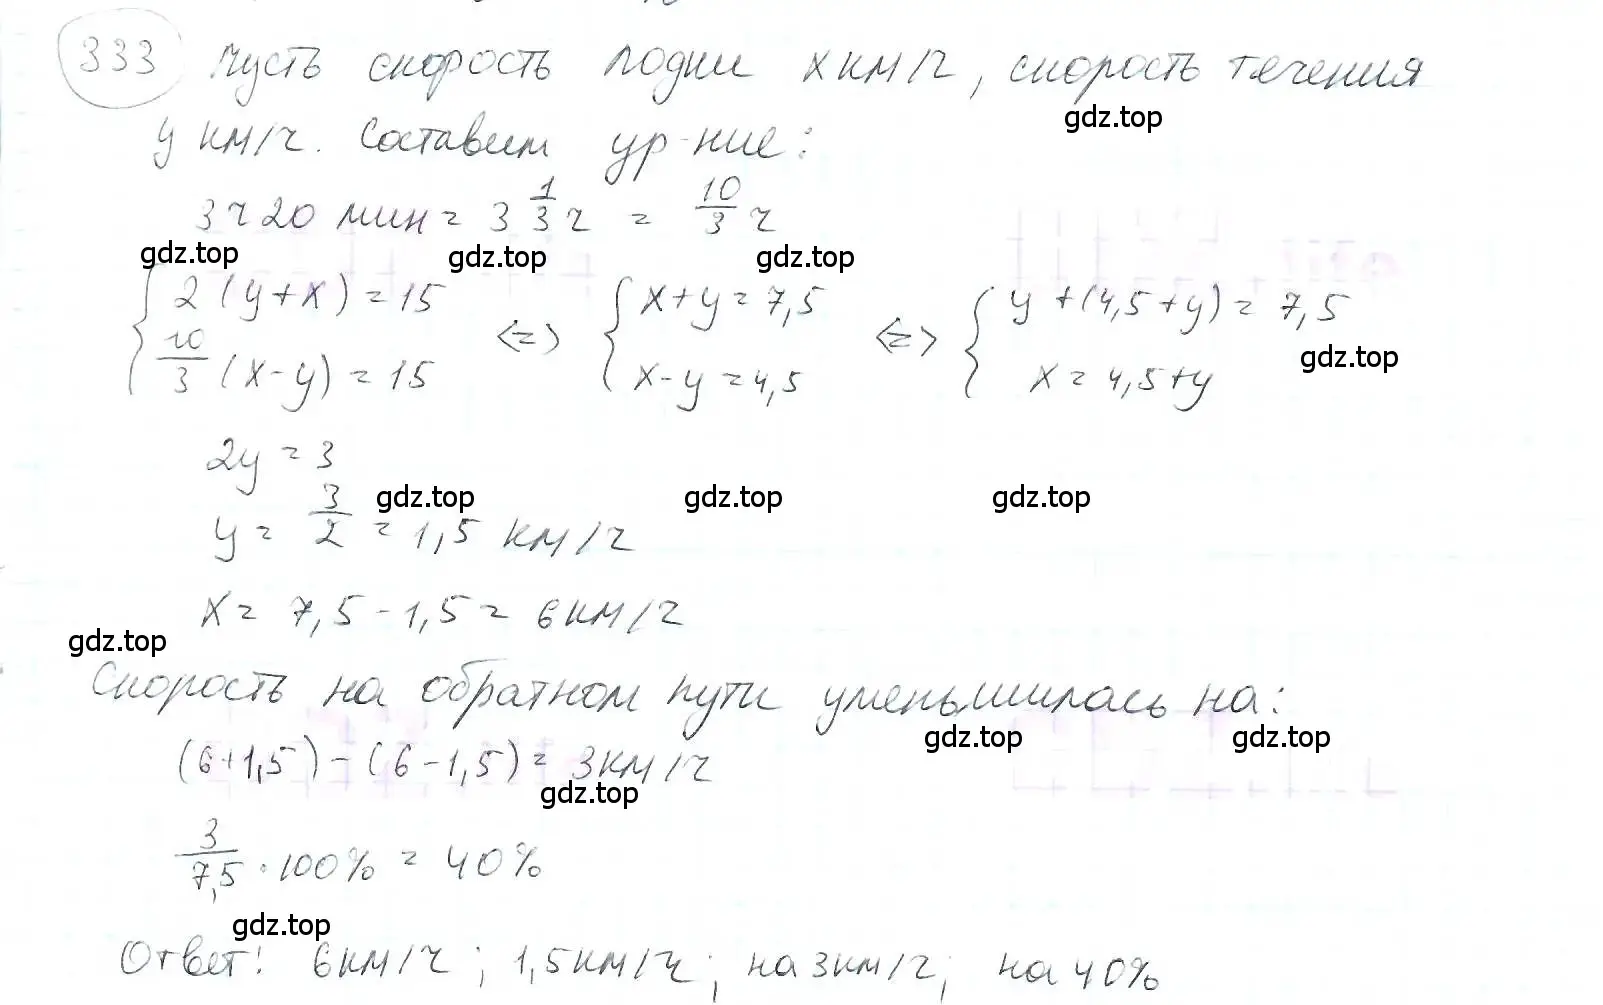 333 Пусть скорость лодки x км/ч, скорость течения
gdz.top
y км/ч. Составим ур-ние:
3ч 20 мин = 3 1/3 ч = 10/3 ч
gdz.top gdz.top gdz.top
{ 2(y+x) = 15 <=> { x+y = 7,5 <=> { y+(4,5+y) = 7,5
gdz.top
10/3 (x-y) = 15 x-y = 4,5 x = 4,5+y
2y = 3
gdz.top gdz.top gdz.top
y = 3/2 = 1,5 км/ч
x = 7,5 - 1,5 = 6 км/ч
gdz.top
Скорость на обратном пути уменьшилась на:
gdz.top gdz.top
(6+1,5) - (6-1,5) = 3 км/ч
gdz.top
3/7,5 · 100% = 40%
gdz.top
Ответ: 6 км/ч; 1,5 км/ч; на 3 км/ч; на 40%